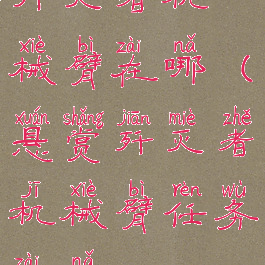 xiè bì zài nǎ
械 臂 在 哪 (
xuán shǎng jiān miè zhě
悬 赏 歼 灭 者
jī xiè bì rèn wù
机 械 臂 任 务
zài nǎ